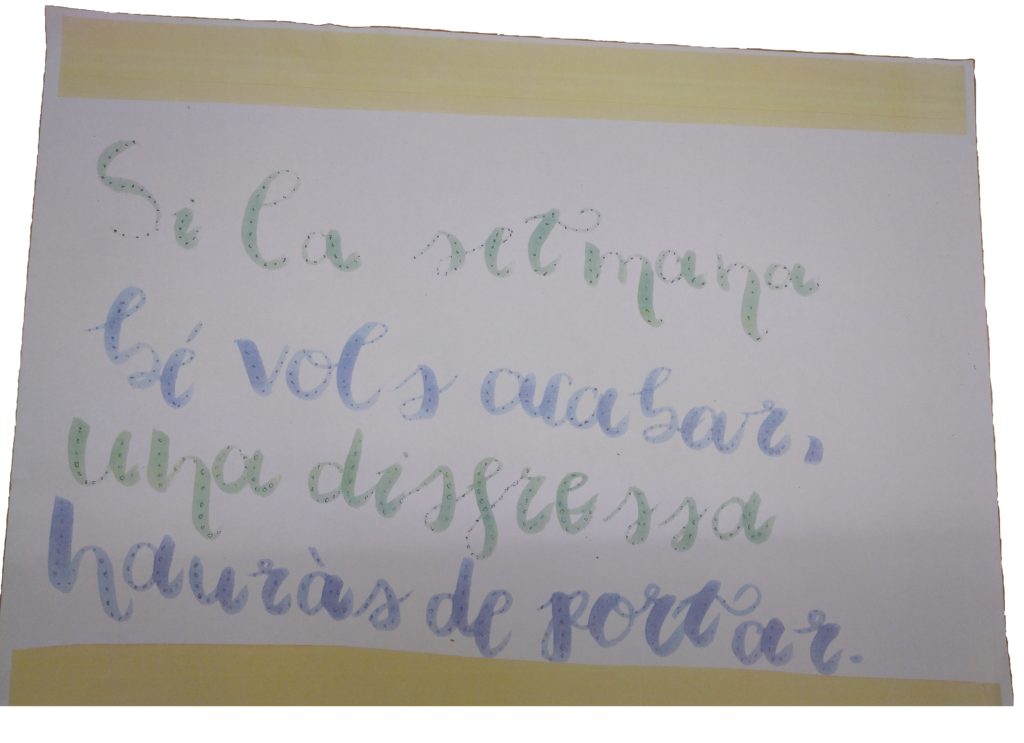 Si la setmana
bé vols acabar,
una disfressa
hauràs de portar.